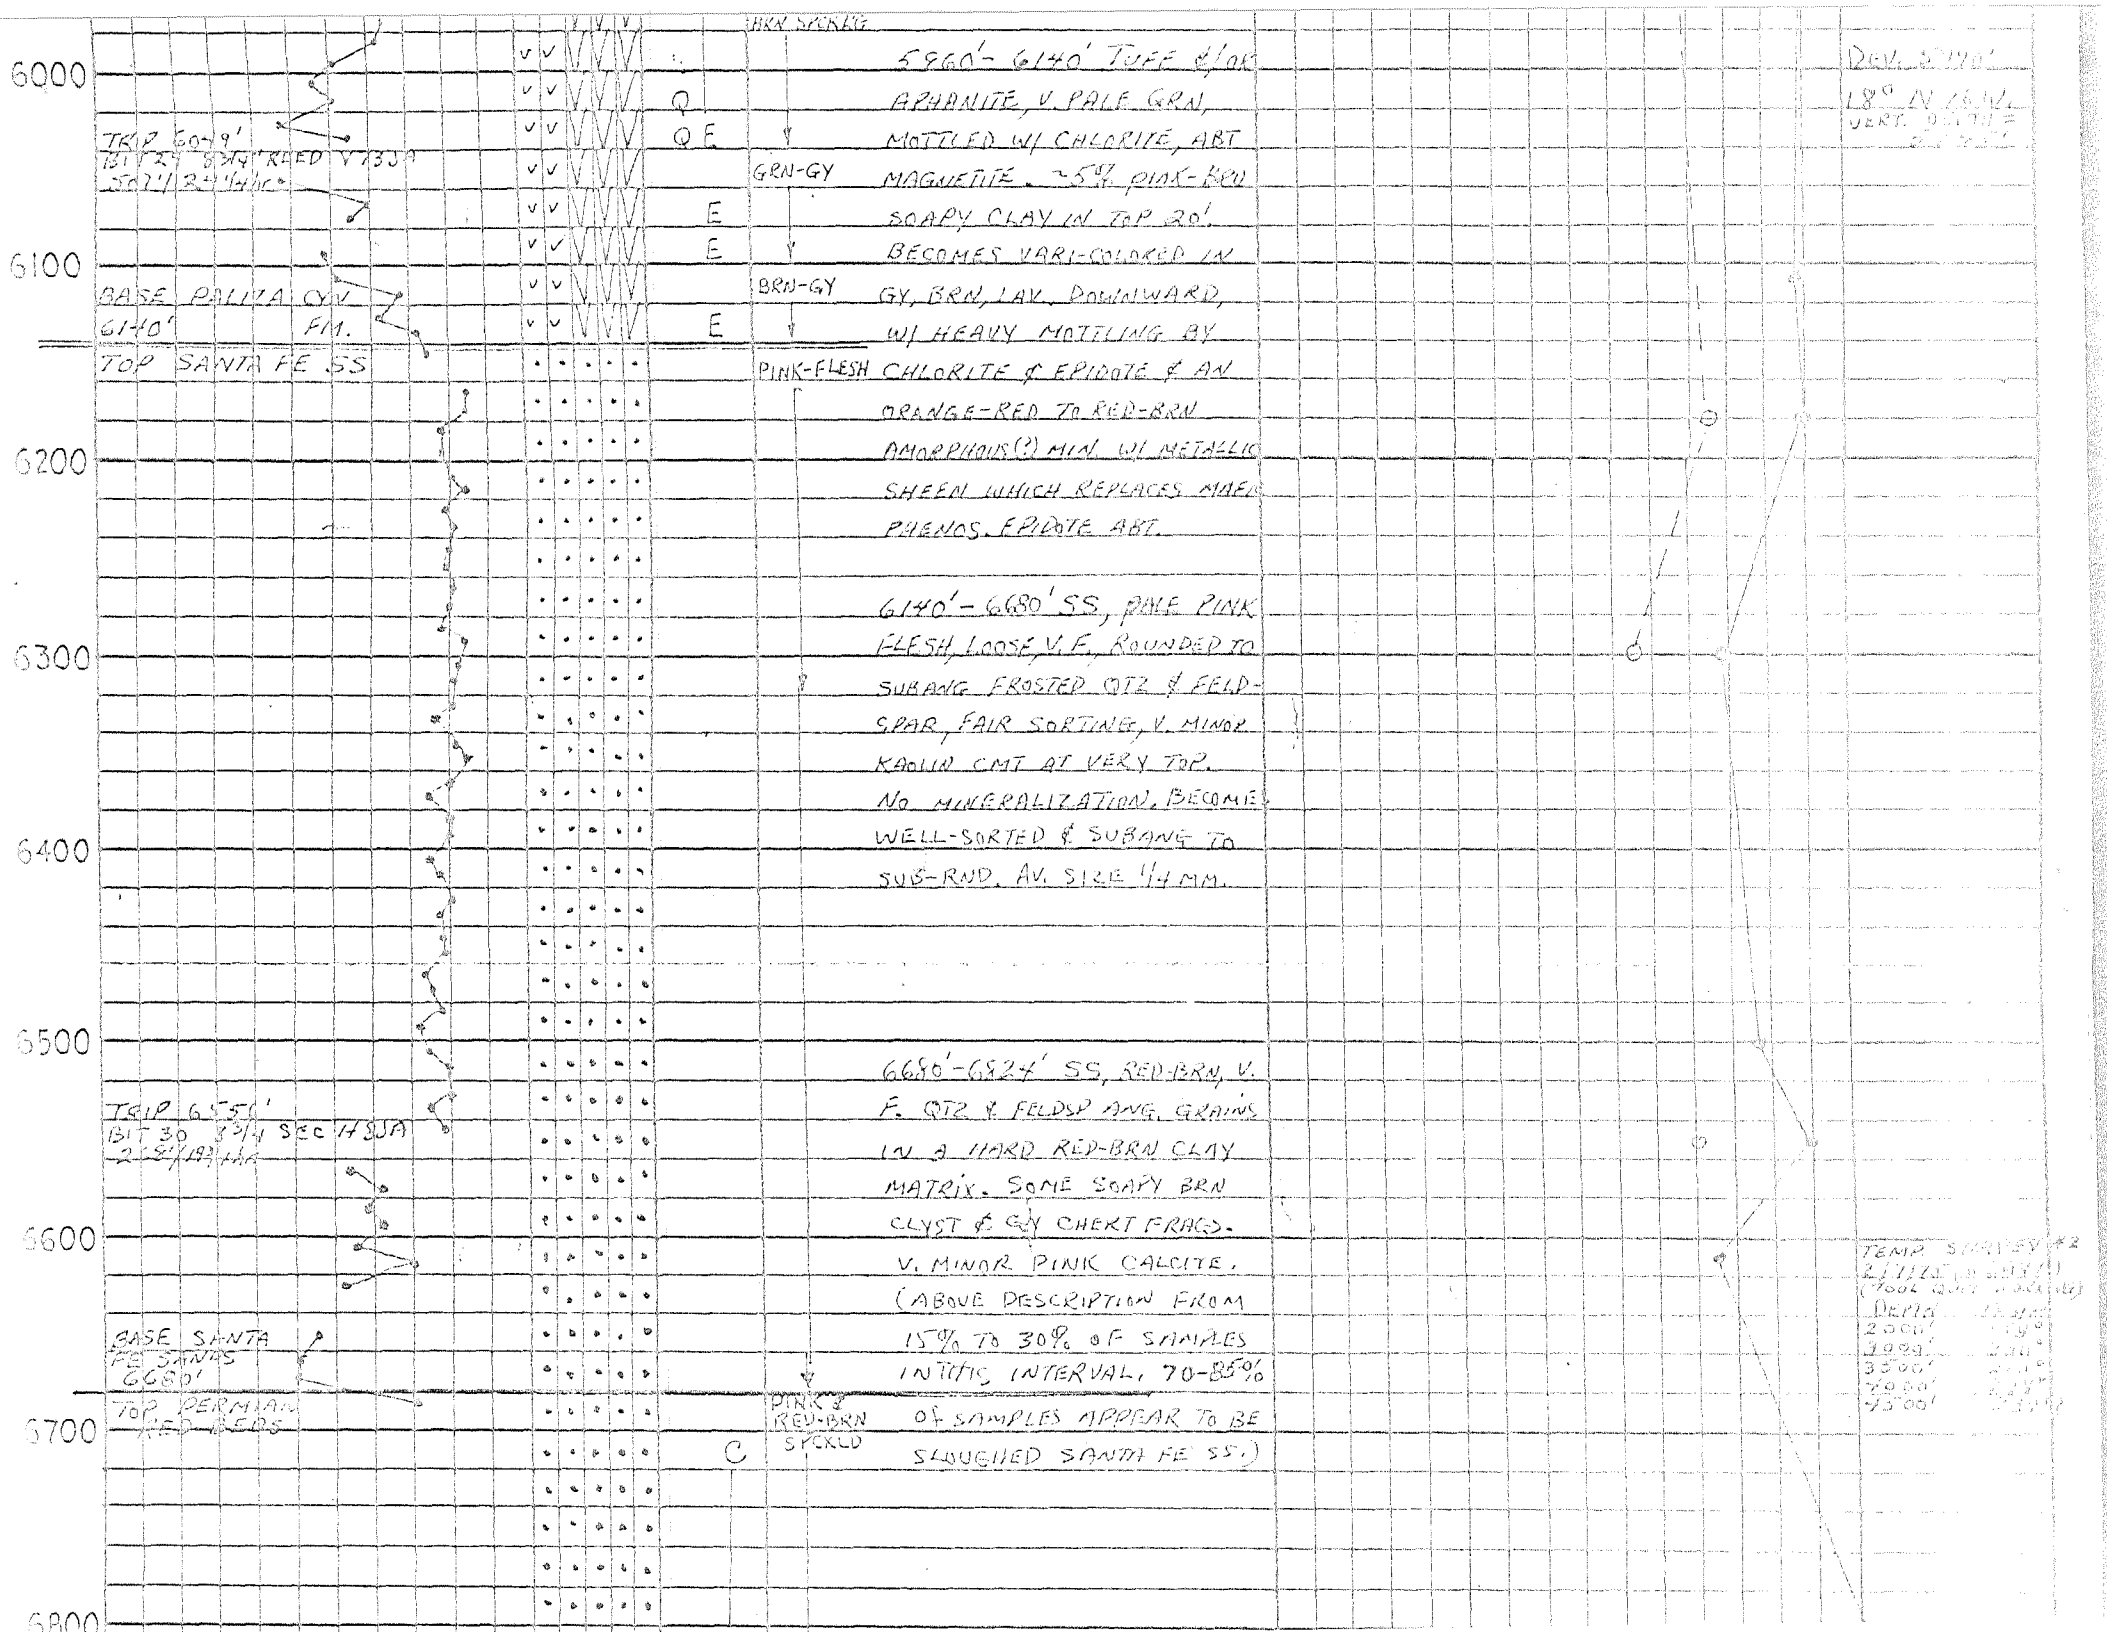 6000
TRIP 6049'
BIT 29 8 3/4" REED V73JA
6100
BASE PALIZA CYN
6140' FM.
TOP SANTA FE SS
6200
6300
6400
6500
BIT 30 8 3/4 SEC H8JA
6600
BASE SANTA
FE SANDS
6680'
TOP PERMIAN
RED BEDS
6700
6800
Q
Q E
E
E
E
C
GRN-GY
BRN-GY
PINK-FLESH
PINK &
RED-BRN
SPCKLD
5960'-6140' TUFF &/OR
APHANITE, V. PALE GRN,
MOTTLED W/ CHLORITE, ABT
MAGNETITE. ~5% PINK-BRN
SOAPY CLAY IN TOP 20'.
BECOMES VARI-COLORED IN
GY, BRN, LAV. DOWNWARD,
W/ HEAVY MOTTLING BY
CHLORITE & EPIDOTE & AN
ORANGE-RED TO RED-BRN
AMORPHOUS(?) MIN. W/ METALLIC
SHEEN WHICH REPLACES MAFIC
PHENOS. EPIDOTE ABT.
6140'-6680' SS, PALE PINK
FLESH, LOOSE, V.F., ROUNDED TO
SUBANG FROSTED QTZ & FELD-
SPAR, FAIR SORTING, V. MINOR
KAOLIN CMT AT VERY TOP.
NO MINERALIZATION. BECOMES
WELL-SORTED & SUBANG TO
SUB-RND. AV. SIZE 1/4 MM.
6680'-6824' SS, RED-BRN, V.
F. QTZ & FELDSP ANG. GRAINS
IN A HARD RED-BRN CLAY
MATRIX. SOME SOAPY BRN
CLYST & GY CHERT FRAGS.
V. MINOR PINK CALCITE.
(ABOVE DESCRIPTION FROM
15% TO 30% OF SAMPLES
IN THIS INTERVAL, 70-85%
OF SAMPLES APPEAR TO BE
SLOUGHED SANTA FE SS.)
DEV.
VERT. DEPTH =
TEMP. SURVEY #2
DEPTH
2000'
3000'
3500'
4000'
4500'